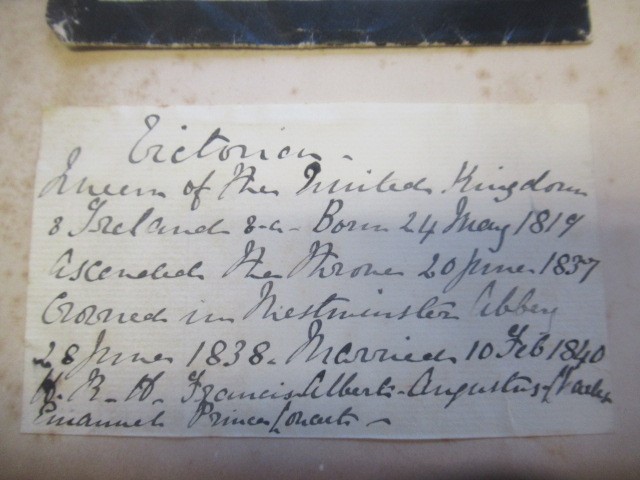 Victoria -
Queen of the United Kingdom
& Ireland &-c- Born 24 May 1819
Ascended the throne 20 June 1837
Crowned in Westminster Abbey
28 June 1838. Married 10 Feb 1840
H. R. H. Francis Albert - Augustus - Charles
Emanuel Prince Consort -